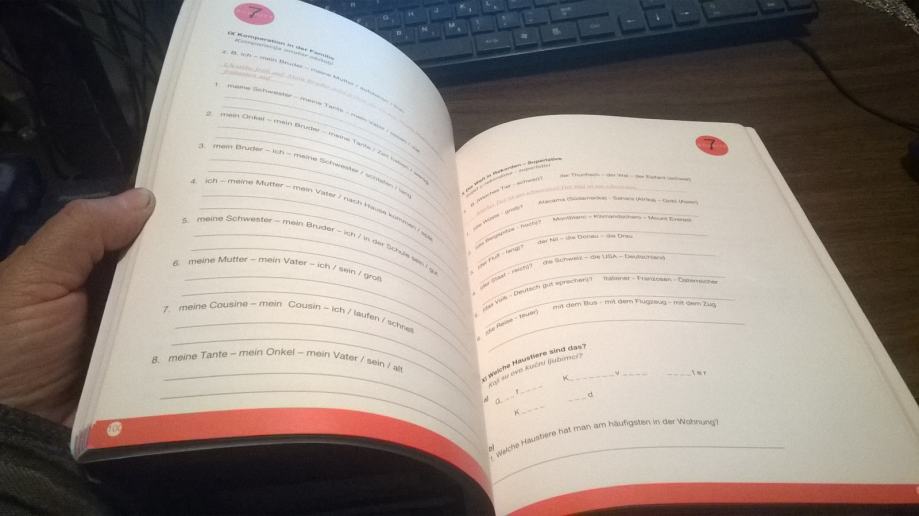 7
IX Komparation in der Familie
z. B. ich – mein Bruder – meine Mutter / aufstehen / früh
1. meine Schwester – meine Tante – mein Vater /
2. mein Onkel – mein Bruder – meine Tante / Zeit haben / wenig
3. mein Bruder – ich – meine Schwester / schlafen / lang
4. ich – meine Mutter – mein Vater / nach Hause kommen / spät
5. meine Schwester – mein Bruder – ich / in der Schule sein / gut
6. meine Mutter – mein Vater – ich / sein / groß
7. meine Cousine – mein Cousin – ich / laufen / schnell
8. meine Tante – mein Onkel – mein Vater / sein / alt
100
7
X Die Welt in Rekorden – Superlative
z. B. (welches Tier - schwer)? der Thunfisch – der Wal – der Elefant
1. (die Wüste - groß)? Atacama (Südamerika) - Sahara (Afrika) – Gobi (Asien)
2. (die Bergspitze - hoch)? Montblanc – Kilimandscharo – Mount Everest
3. (der Fluß - lang)? der Nil – die Donau – die Drau
4. (der Staat - reich)? die Schweiz – die USA – Deutschland
5. (das Volk - Deutsch gut sprechen)? Italiener - Franzosen - Österreicher
6. (die Reise - teuer) mit dem Bus - mit dem Flugzeug – mit dem Zug
XI Welche Haustiere sind das?
Koji su ovo kućni ljubimci?
a) G_ _ _ r _ _ _ _ K_ _ _ _ _ _ _ v _ _ _ _ _ _ _ _ t e r
K_ _ _ _ _ _ _ d
b)
1. Welche Haustiere hat man am häufigsten in der Wohnung?